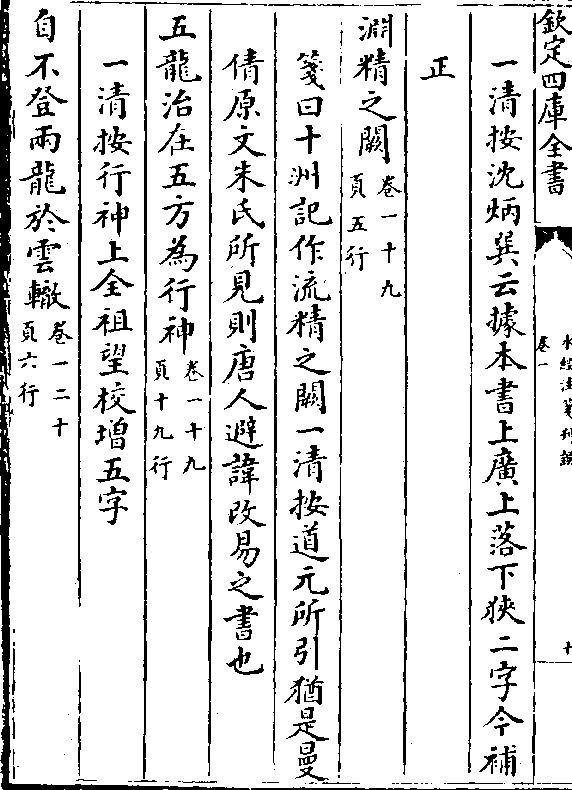 欽定四庫全書
水經注箋刊誤
卷一
十
一清按沈炳巽云據本書上廣上落下狹二字今補
正
淵精之闕卷一十九頁五行
箋曰十洲記作流精之闕一清按道元所引猶是曼
倩原文朱氏所見則唐人避諱改易之書也
五龍治在五方為行神卷一十九頁十九行
一清按行神上全祖望校增五字
自不登兩龍於雲轍卷一二十頁六行